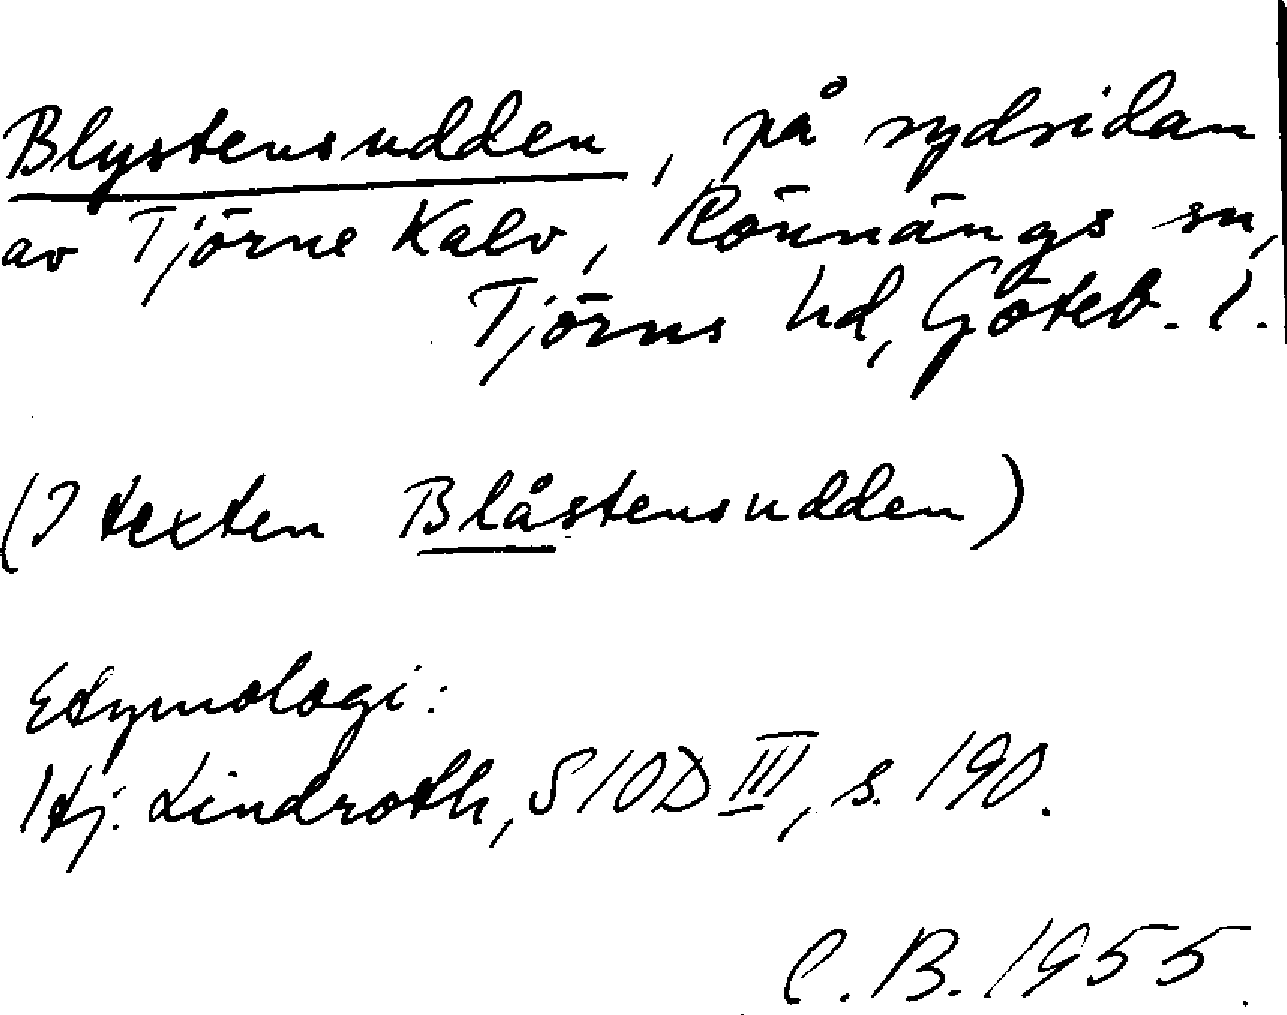 Blystensudden, på sydsidan
av Tjörne Kalv, Rönnängs sn,
Tjörns hd, Göteb. l.
(I texten Blåstensudden)
Etymologi:
Hj. Lindroth, SIOD III, s. 190.
C. B. 1955.